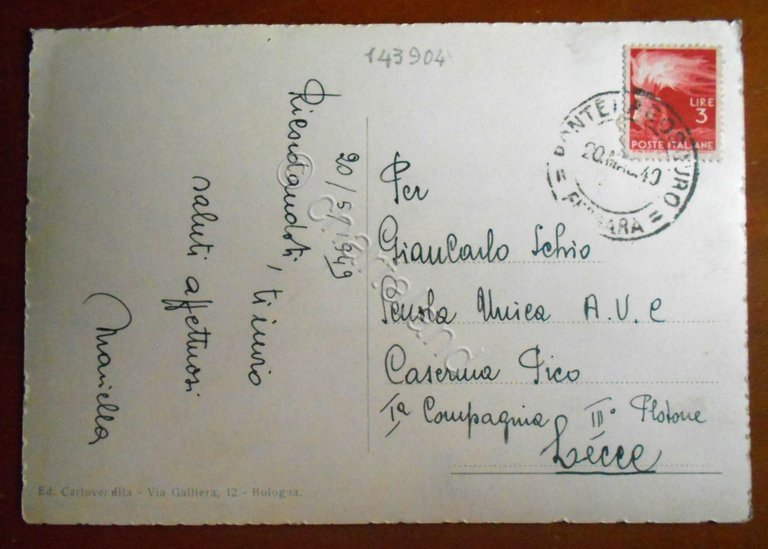 143904
20/5/1949
Ricordandoti, ti invio
saluti affettuosi
Mariella
LIRE
3
POSTE ITALIANE
PONTELAGOSCURO
20.MAG.49
= FERRARA =
Per
Giancarlo Schio
Scuola Unica A.U.C
Caserma Pico
Iª Compagnia III° Plotone
Lecce
Ed. Cartovendita - Via Galliera, 12 - Bologna.